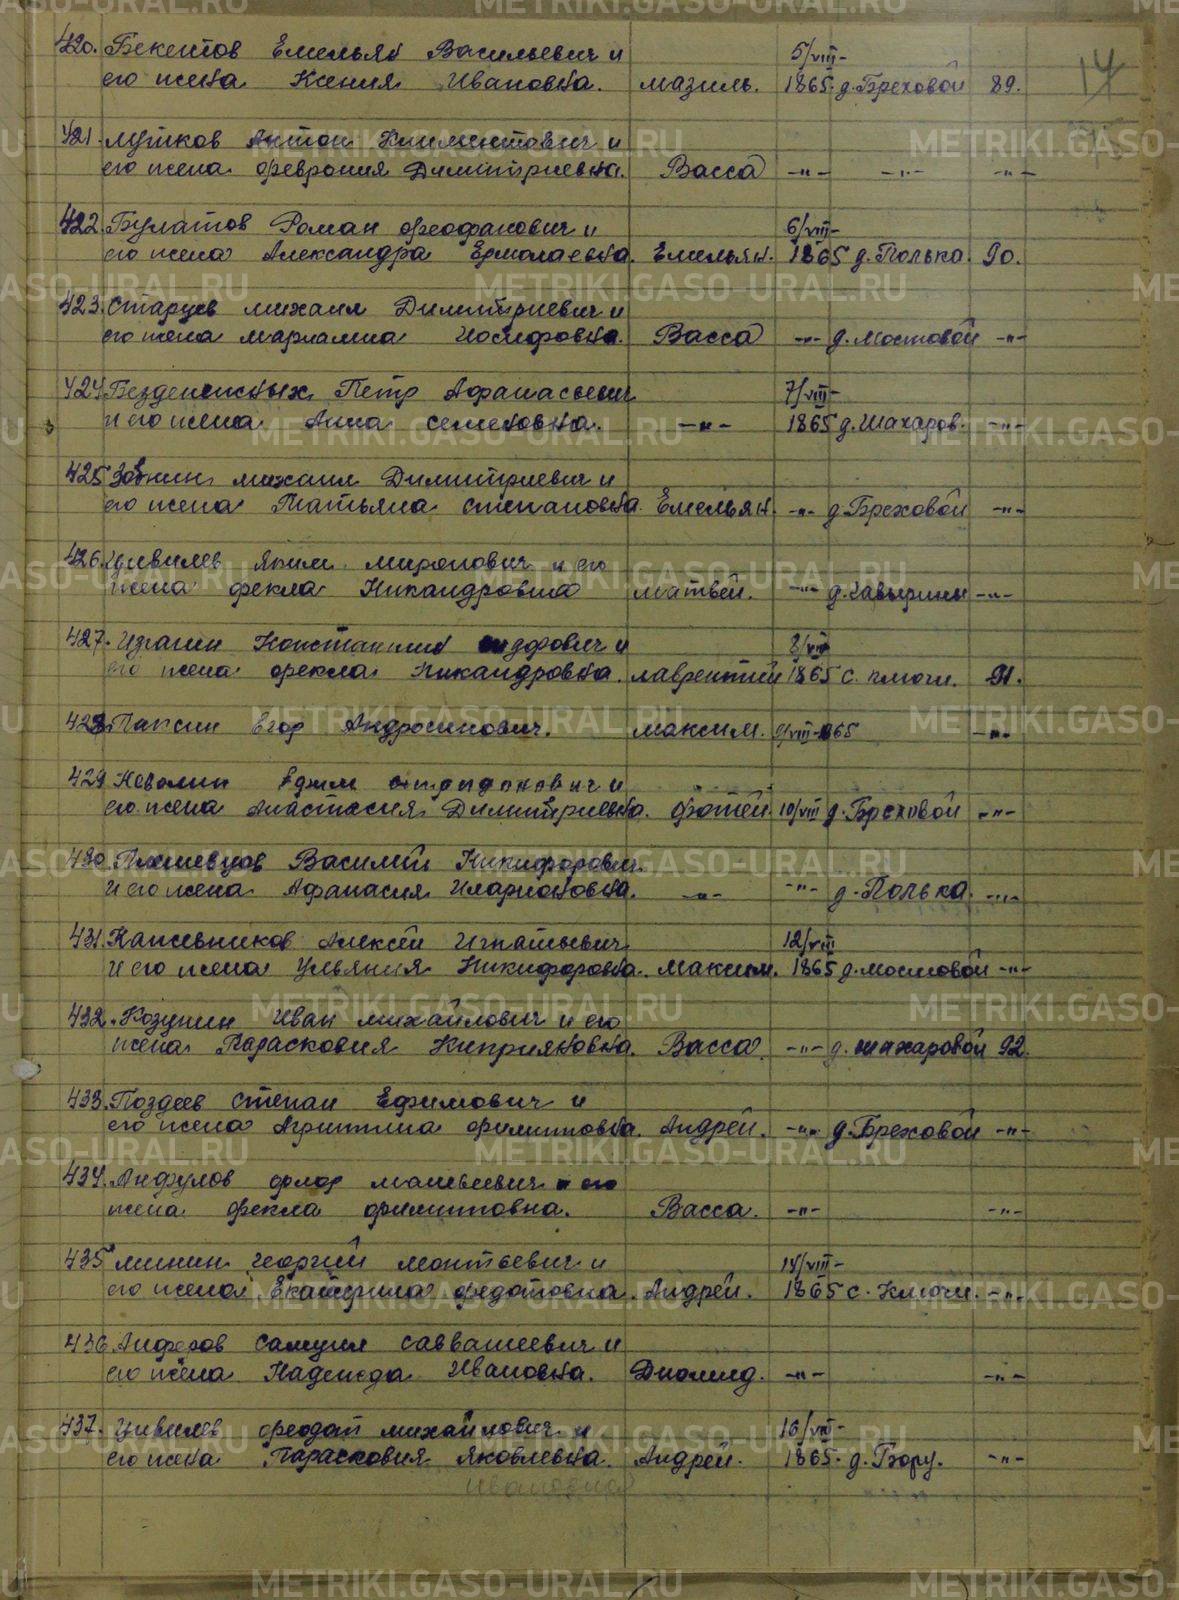 14
420. Бекетов Емельян Васильевич и 5/VIII-
его жена Ксения Ивановна. Мазиль. 1865. д. Бреховой 89.
421. Лутков Антон Климентович и
его жена Феврония Димитриевна. Васса -"- -"- -"-
422. Булатов Роман Феофанович и 6/VIII-
его жена Александра Ермолаевна. Емельян. 1865 д. Полька. 90.
423. Старцев Михаил Димитриевич и
его жена Мариамна Иосифовна. Васса -"- д. Мостовой -"-
424. Безденежных Петр Афанасьевич 7/VIII-
и его жена Анна Семеновна. -"- 1865 д. Шахаров. -"-
425 Зобнин Михаил Димитриевич и
его жена Татьяна Степановна. Емельян. -"- д. Бреховой -"-
426. Цивилев Яким Миронович и его
жена Фекла Никандровна Матвей. -"- д. -"-
427. Изгагин Константин Сидорович и 8/VIII
его жена Фекла Никандровна. Лаврентий 1865 с. Ключи. 91.
428 Паксин Егор Андросинович. Максим. 9/VIII-865 -"-
429 Неволин и
его жена Анастасия Димитриевна. Фотей. 10/VIII д. Бреховой -"-
430 Плешевцов Василий Никифорович
и его жена Афанасия Иларионовна. -"- -"- д. Полька. -"-
431. Кожевников Алексей Игнатьевич 12/VIII
и его жена Ульяния Никифоровна. Максим. 1865 д. Мостовой -"-
432. Козунин Иван Михайлович и его
жена Парасковия Киприяновна. Васса. -"- д. Шахаровой 92.
433. Поздеев Степан Ефимович и
его жена Агриппина Филипповна. Андрей. -"- д. Бреховой -"-
434. Анфулов Флор Матвеевич и его
жена Фекла Филипповна. Васса. -"- -"-
435 Минин Георгий Монтьевич и 14/VIII-
его жена Екатерина Федотовна. Андрей. 1865 с. Ключи. -"-
436 Анферов Самуил Савватеевич и
его жена Надежда Ивановна. Диомид. -"- -"-
437. Цивилев Феодот Михайлович и 16/VIII-
его жена Парасковия Яковлевна. Андрей. 1865. д. Бору. -"-
Ивановна
METRIKI.GASO-URAL.RU